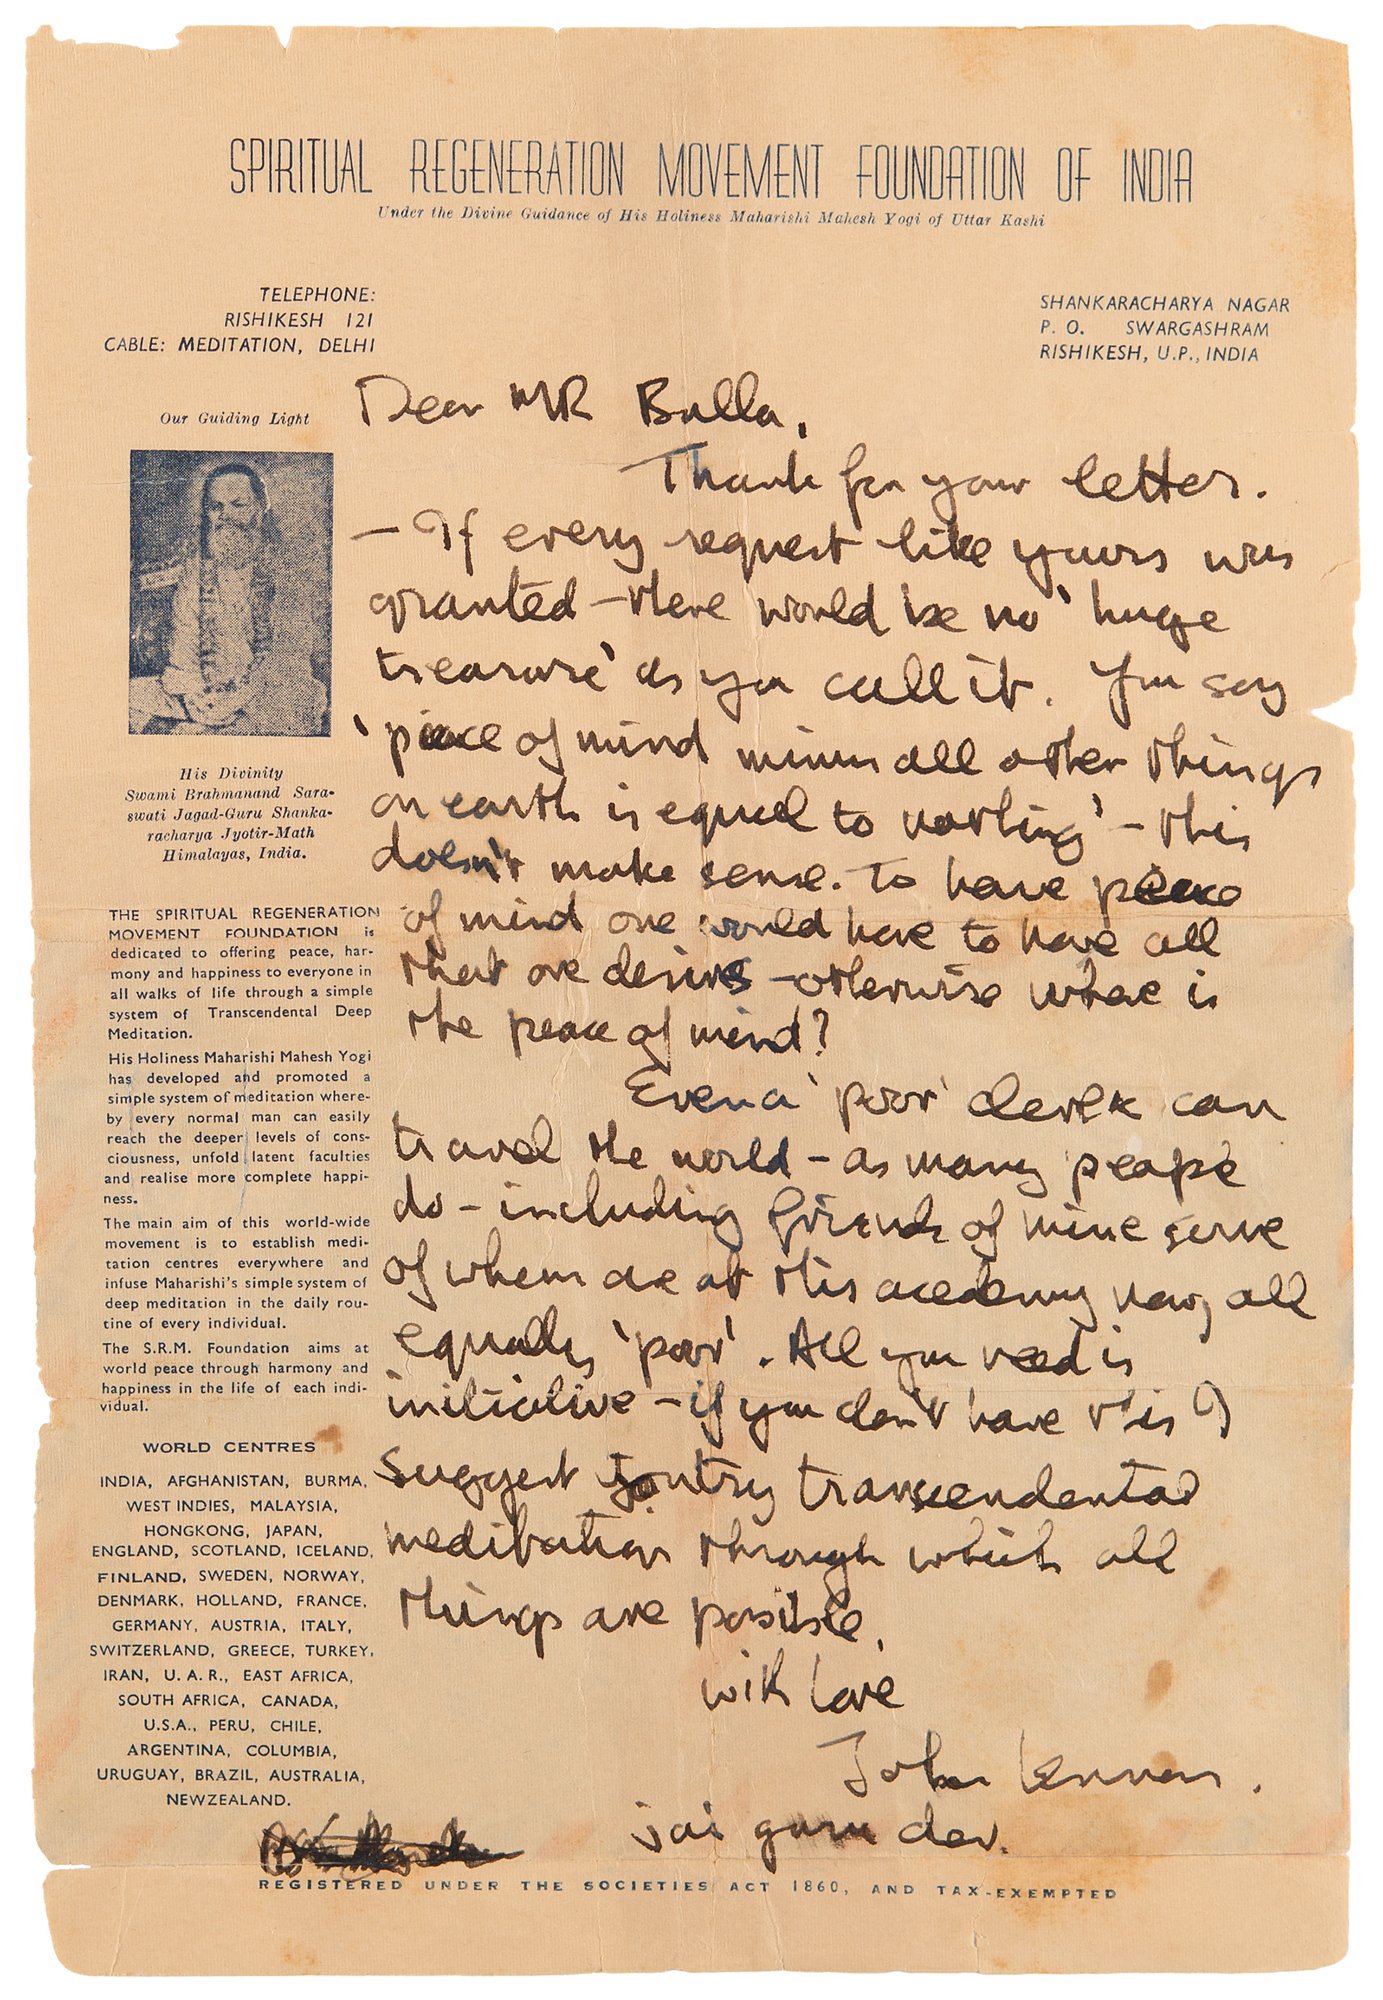 SPIRITUAL REGENERATION MOVEMENT FOUNDATION OF INDIA
Under the Divine Guidance of His Holiness Maharishi Mahesh Yogi of Uttar Kashi
TELEPHONE:
RISHIKESH 121
CABLE: MEDITATION, DELHI
SHANKARACHARYA NAGAR
P. O. SWARGASHRAM
RISHIKESH, U.P., INDIA
Our Guiding Light
His Divinity
Swami Brahmanand Sara-
swati Jagad-Guru Shanka-
racharya Jyotir-Math
Himalayas, India.
THE SPIRITUAL REGENERATION
MOVEMENT FOUNDATION is
dedicated to offering peace, har-
mony and happiness to everyone in
all walks of life through a simple
system of Transcendental Deep
Meditation.
His Holiness Maharishi Mahesh Yogi
has developed and promoted a
simple system of meditation where-
by every normal man can easily
reach the deeper levels of cons-
ciousness, unfold latent faculties
and realise more complete happi-
ness.
The main aim of this world-wide
movement is to establish medi-
tation centres everywhere and
infuse Maharishi's simple system of
deep meditation in the daily rou-
tine of every individual.
The S.R.M. Foundation aims at
world peace through harmony and
happiness in the life of each indi-
vidual.
WORLD CENTRES
INDIA, AFGHANISTAN, BURMA,
WEST INDIES, MALAYSIA,
HONGKONG, JAPAN,
ENGLAND, SCOTLAND, ICELAND,
FINLAND, SWEDEN, NORWAY,
DENMARK, HOLLAND, FRANCE,
GERMANY, AUSTRIA, ITALY,
SWITZERLAND, GREECE, TURKEY,
IRAN, U. A. R., EAST AFRICA,
SOUTH AFRICA, CANADA,
U.S.A., PERU, CHILE,
ARGENTINA, COLUMBIA,
URUGUAY, BRAZIL, AUSTRALIA,
NEWZEALAND.
Dear MR Bulla,
Thank for your letter.
- If every request like yours was
granted - there would be no 'huge
treasure' as you call it. You say
'peace of mind minus all other things
on earth is equal to nothing' - this
doesn't make sense. To have peace
of mind one would have to have all
that one desires - otherwise where is
the peace of mind?
Even a 'poor' clerk can
travel the world - as many people
do - including friends of mine some
of whom are at this academy now, all
equally 'poor'. All you need is
initiative - if you don't have this I
suggest you try transcendental
meditation through which all
things are possible.
with love
John Lennon.
jai guru dev.
REGISTERED UNDER THE SOCIETIES ACT 1860, AND TAX-EXEMPTED